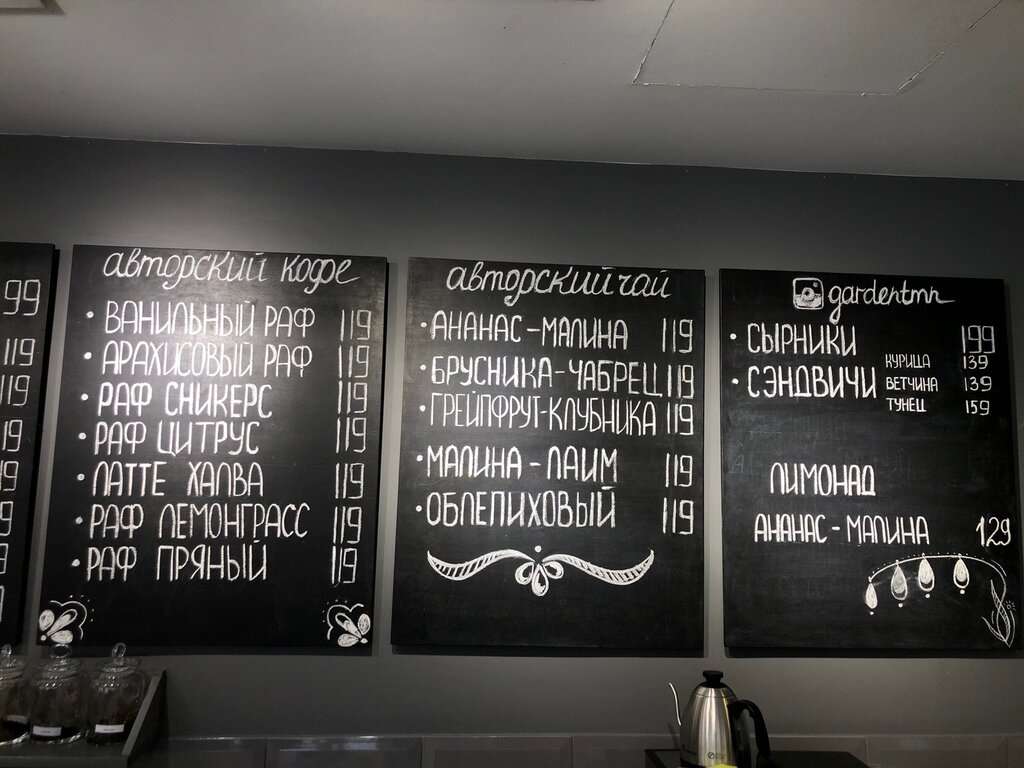 99
119
119
19
19
9
авторский кофе
• ВАНИЛЬНЫЙ РАФ 119
• АРАХИСОВЫЙ РАФ 119
• РАФ СНИКЕРС 119
• РАФ ЦИТРУС 119
• ЛАТТЕ ХАЛВА 119
• РАФ ЛЕМОНГРАСС 119
• РАФ ПРЯНЫЙ 119
авторский чай
• АНАНАС-МАЛИНА 119
• БРУСНИКА-ЧАБРЕЦ 119
• ГРЕЙПФРУТ-КЛУБНИКА 119
• МАЛИНА-ЛАЙМ 119
• ОБЛЕПИХОВЫЙ 119
gardentmn
• СЫРНИКИ 199
• СЭНДВИЧИ КУРИЦА 139
ВЕТЧИНА 139
ТУНЕЦ 159
ЛИМОНАД
АНАНАС-МАЛИНА 129